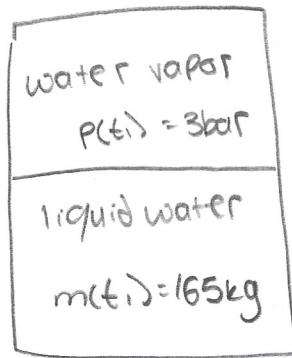 water vapor
p(t₁) = 3bar
liquid water
m(t₁)=165kg